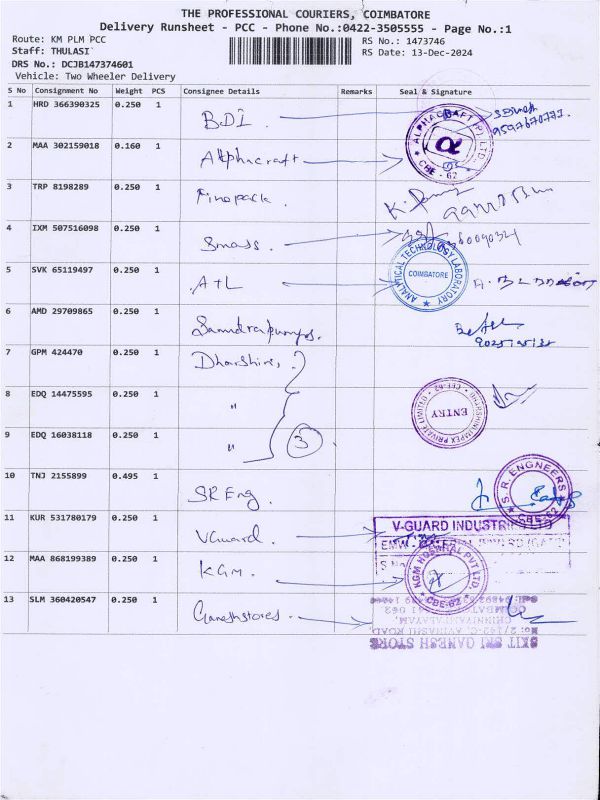 THE PROFESSIONAL COURIERS, COIMBATORE
Delivery Runsheet - PCC - Phone No.:0422-3505555 - Page No.:1
Route: KM PLM PCC
RS No.: 1473746
Staff: THULASI
RS Date: 13-Dec-2024
DRS No.: DCJB147374601
Vehicle: Two Wheeler Delivery
S No Consignment No Weight PCS Consignee Details Remarks Seal & Signature
1 HRD 366390325 0.250 1 BDI.
2 MAA 302159018 0.160 1 Alphacraft
ALPHACRAFT (P) LTD. CBE - 62
3 TRP 8198289 0.250 1 Finopack.
4 IXM 507516098 0.250 1 Smass.
5 SVK 65119497 0.250 1 ATL
ANALYTICAL TECHNOLOGY LABORATORY COIMBATORE
6 AMD 29709865 0.250 1 Samudrapumps.
7 GPM 424470 0.250 1 Dharshini,
8 EDQ 14475595 0.250 1 "
DHARSHINI IMPEX PRIVATE LIMITED ENTRY
9 EDQ 16038118 0.250 1 " 3
10 TNJ 2155899 0.495 1 SR Eng.
S. R. ENGNEERS CBE-62
11 KUR 531780179 0.250 1 Vguard.
V-GUARD INDUSTRIES LTD
12 MAA 868199389 0.250 1 KGM.
CBE-62
13 SLM 360420547 0.250 1 Ganeshstores.
CHINNIYAMPALAYAM,
No: 2/142-C, AVINASHI ROAD,
SKIT SRI GANESH STORE